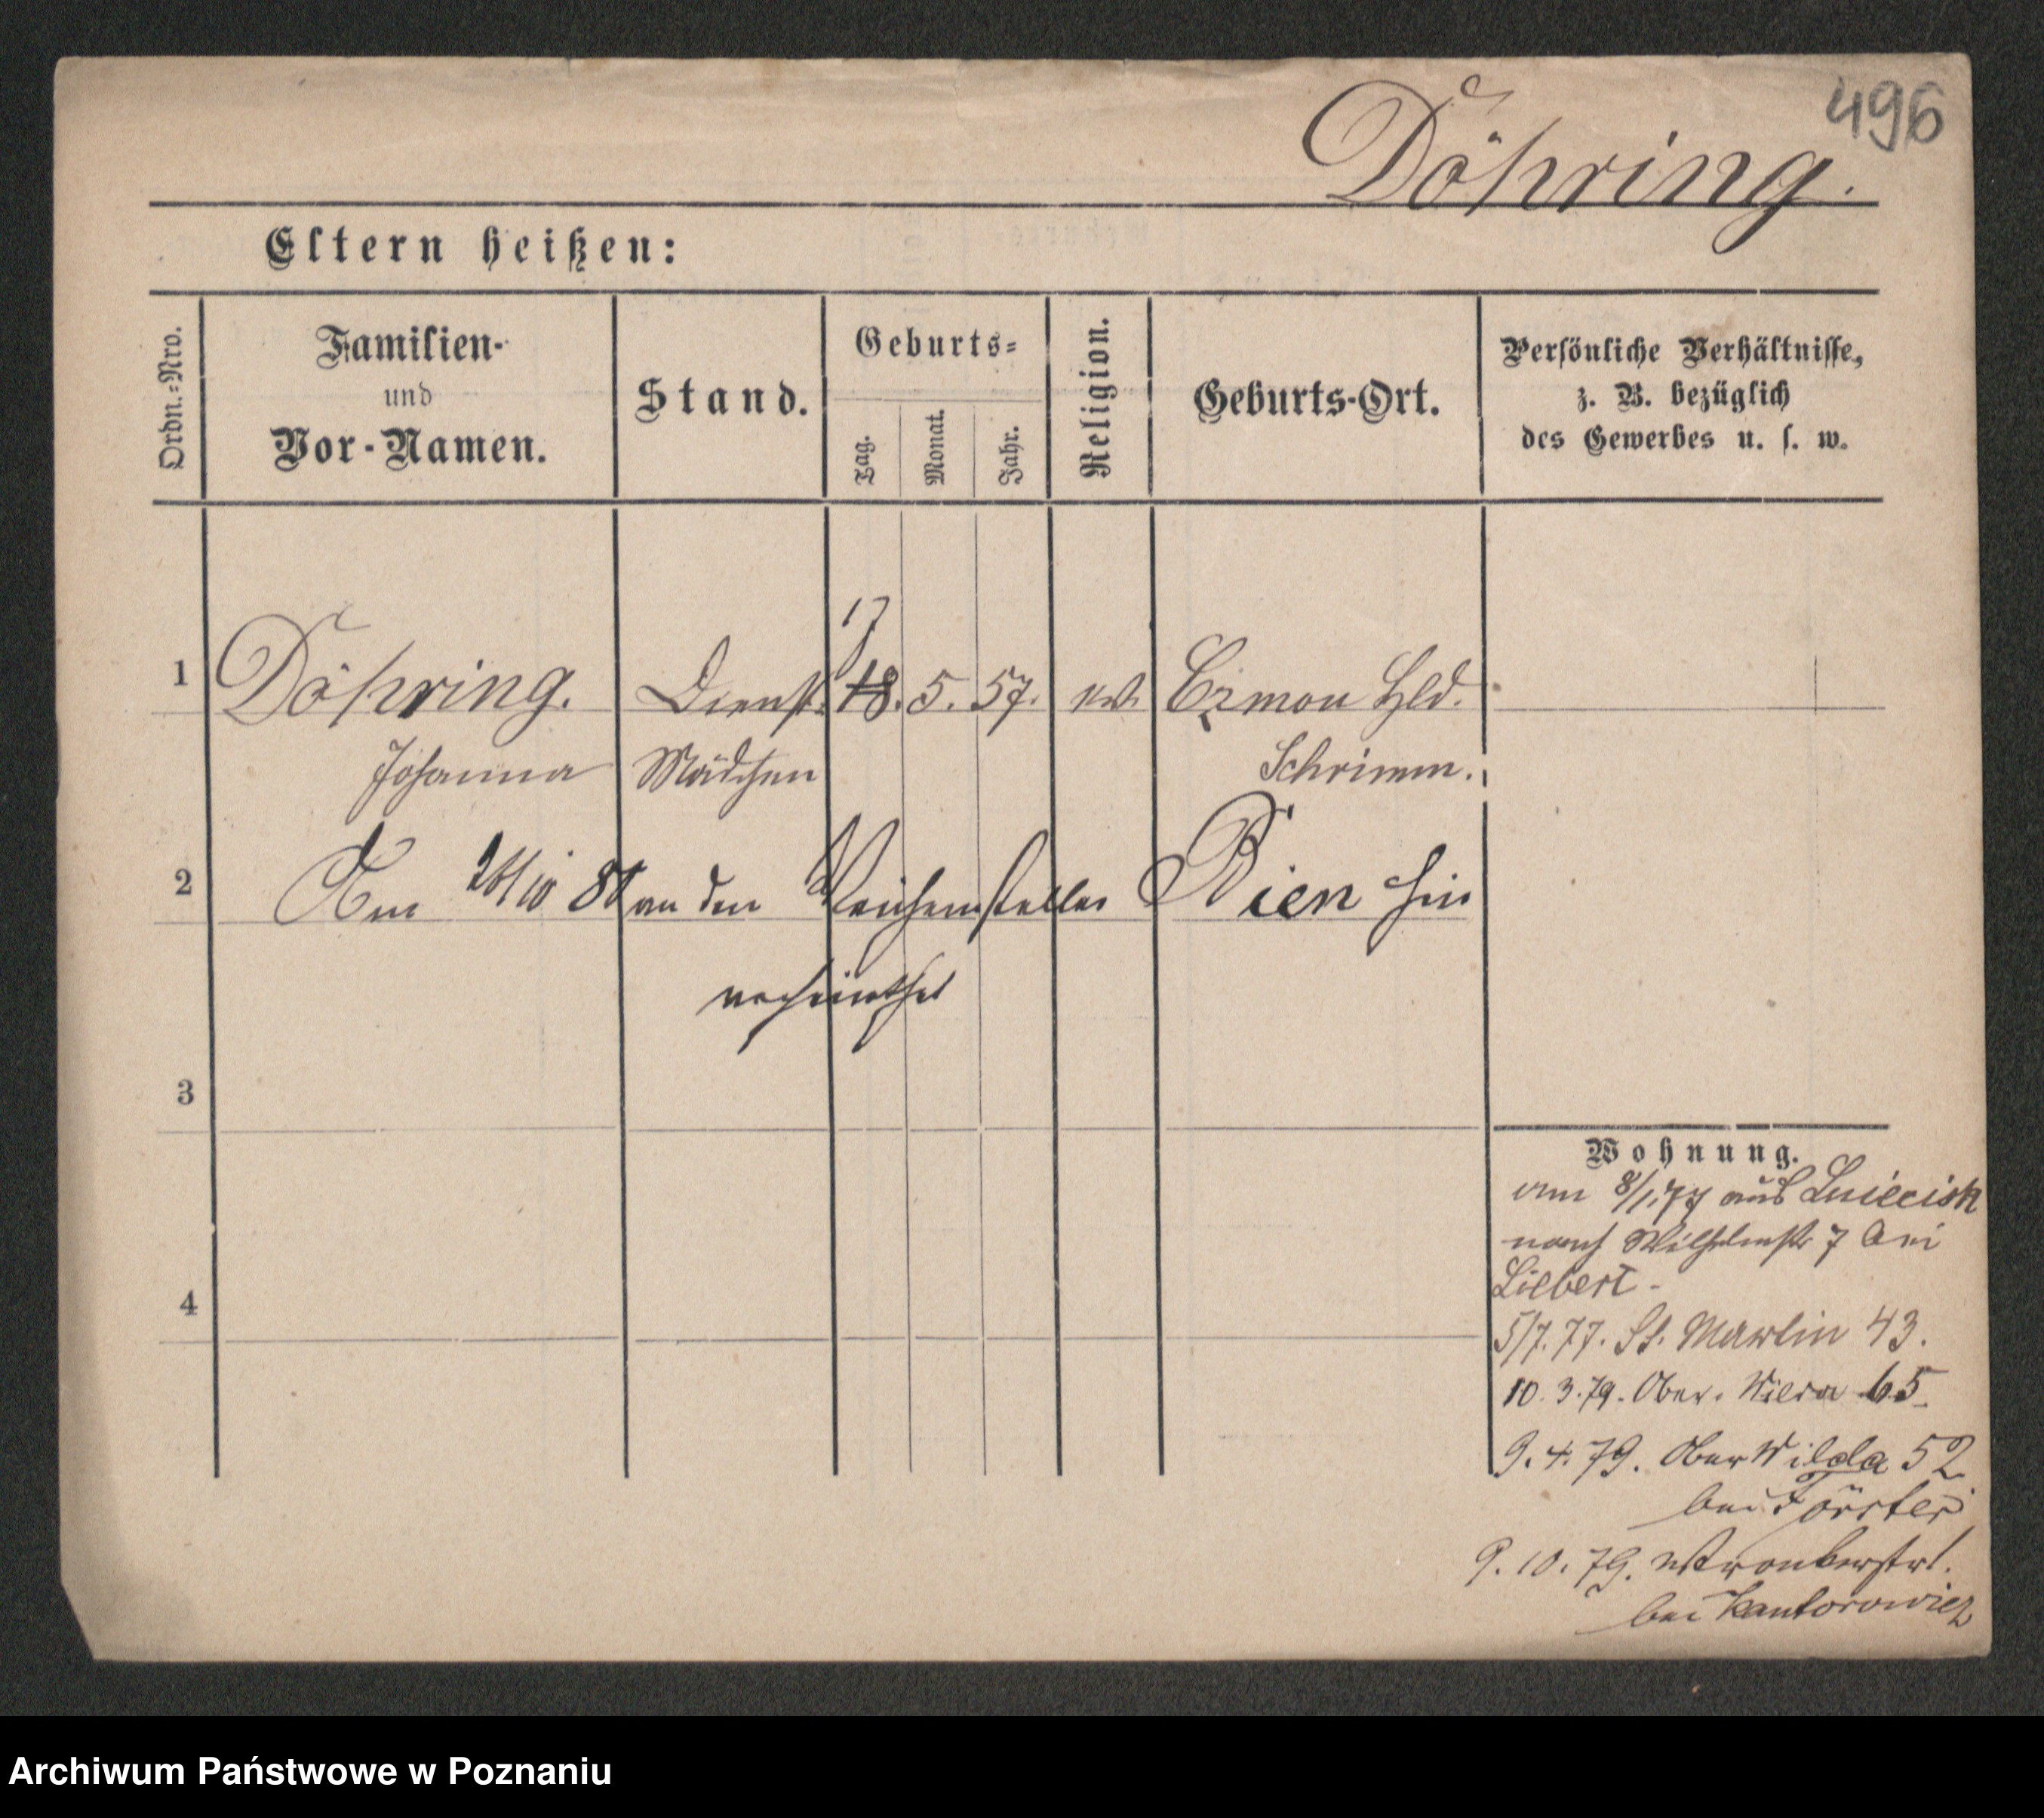 496
Döhring.
Eltern heißen:
Ordn.-Nro.
Familien-
und
Vor-Namen.
Stand.
Geburts-
Tag.
Monat.
Jahr.
Religion.
Geburts-Ort.
Persönliche Verhältnisse,
z. B. bezüglich
des Gewerbes u. s. w.
17
1 Döhring. Dienst 18. 5. 57. ev. Czmon Hld.
Johanna Mädchen Schrimm.
2 Am an den Weichensteller Bien hier
verheirathet
3
4
Wohnung.
am 8/1.77 aus
nach Wilhelmstr 7 bei
Liebert -
5/7.77. St. Martin 43.
10.3.79. Ober. Wilda 65.
9.4.79. Ober Wilda 52
bei Förster
9.10.79. Wronkerstr 1.
bei Kantorowicz
Archiwum Państwowe w Poznaniu